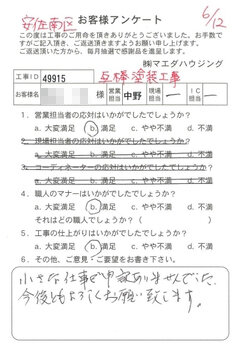 安佐南区 お客様アンケート 6/12
この度は工事のご用命を頂きありがとうございました。お手数で
すがご記入頂き、ご返送頂きますようお願い申し上げます。
ご返送頂いた方から、毎月抽選で感謝品を進呈します。
㈱マエダハウジング
工事ID 49915 塗装工事
お客様名 様 営業担当 中野 現場担当 ー IC担当 ー
1. 営業担当者の応対はいかがでしたでしょうか?
a. 大変満足 b. 満足 c. やや不満 d. 不満
2. 現場担当者の応対はいかがでしたでしょうか?
a. 大変満足 b. 満足 c. やや不満 d. 不満
3. コーディネーターの応対はいかがでしたでしょうか?
a. 大変満足 b. 満足 c. やや不満 d. 不満
4. 職人のマナーはいかがでしたでしょうか?
a. 大変満足 b. 満足 c. やや不満 d. 不満
それはどの職人でしょうか? ( )
5. 工事の仕上がりはいかがでしたでしょうか?
a. 大変満足 b. 満足 c. やや不満 d. 不満
6. その他、ご意見・ご要望をお書き下さい。
小さな仕事で申訳ありませんでした
今後ともよろしくお願い致します。